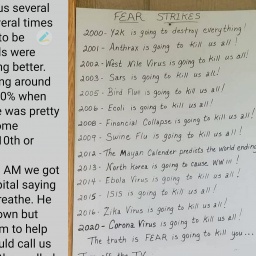 us several
veral times
to be
ls were
ng better.
ng around
0% when
e was pretty
ome
10th or
AM we got
pital saying
reathe. He
own but
m to help
uld call us
FEAR STRIKES
2000- Y2k is going to destroy everything!
2001- Anthrax is going to kill us all!
2002- West Nile Virus is going to kill us all!
2003- Sars is going to kill us all!
2005- Bird Flu is going to kill us all!
2006- Ecoli is going to kill us all!
2008- Financial Collapse is going to kill us all!
2009- Swine Flu is going to kill us all!
2012- The Mayan Calender predicts the world ending
2013- North Korea is going to cause WW III!
2014- Ebola Virus is going to kill us all!
2015- ISIS is going to kill us all!
2016- Zika Virus is going to kill us all!
2020- Corona Virus is going to kill us all!
The truth is FEAR is going to kill you...